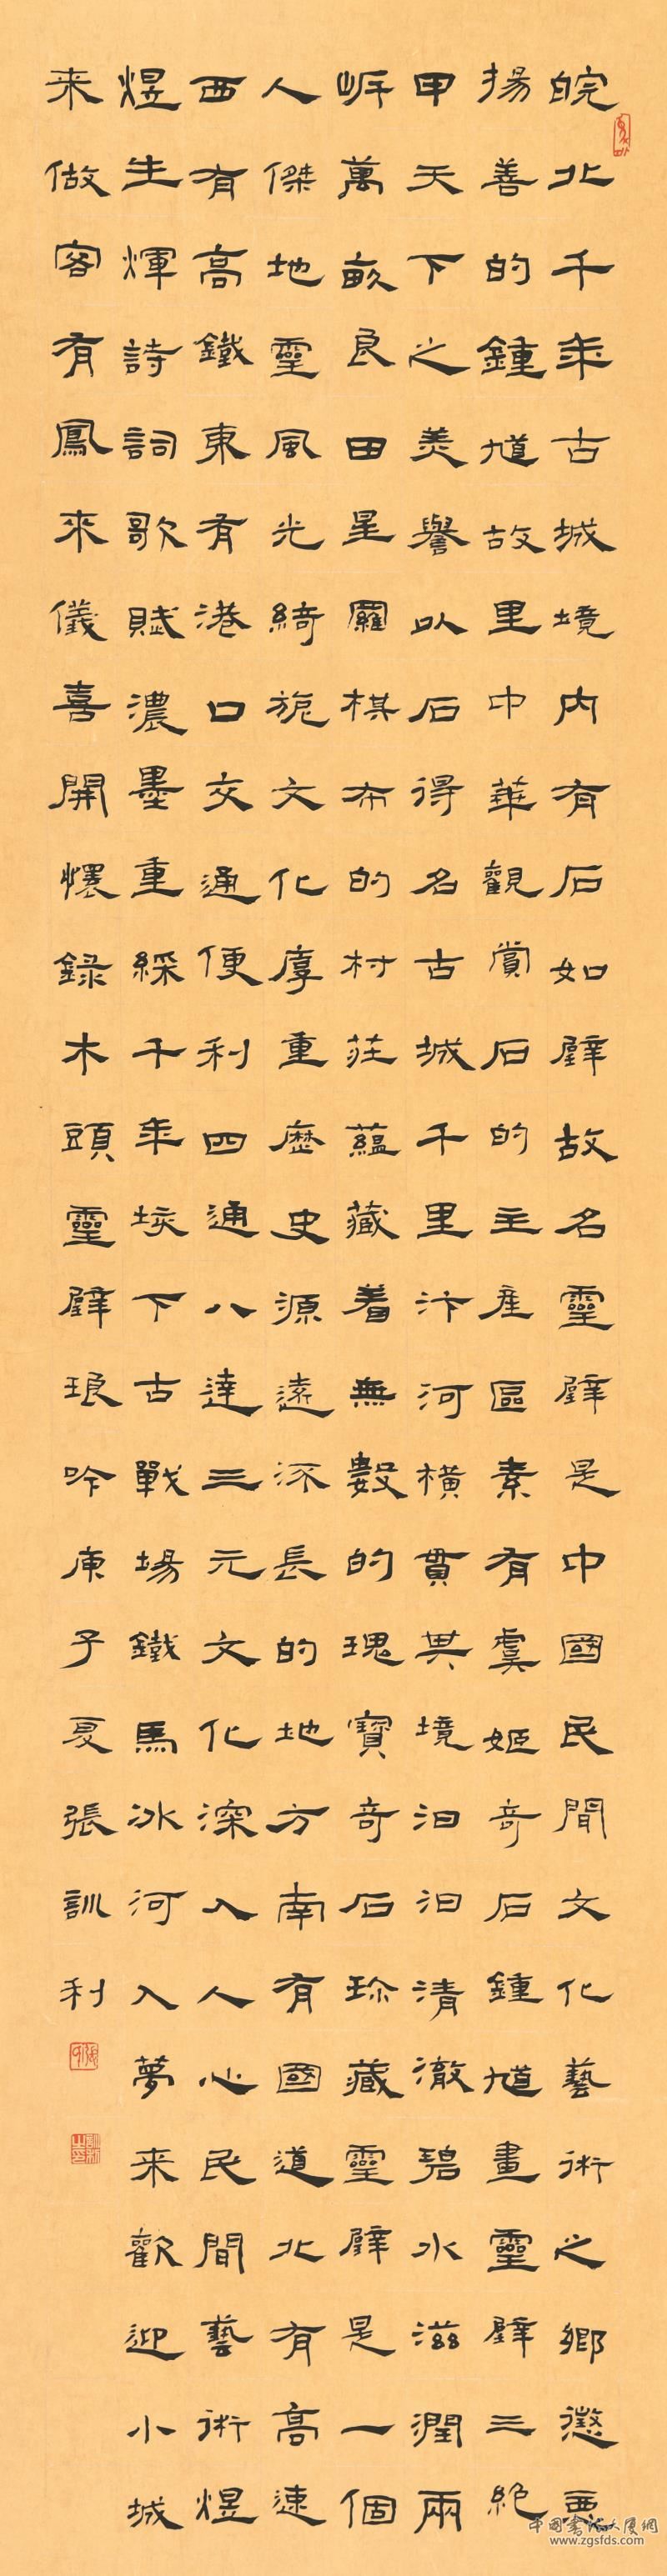 皖北千年古城境内有石如璧故名靈璧是中國民間文化藝術之鄉懲惡
揚善的鍾馗故里中華觀賞石的主產區素有虞姬奇石鍾馗畫靈璧三絕
甲天下之美譽以石得名古城千里汴河橫貫其境汩汩清澈碧水滋潤兩
岸萬畝良田星羅棋布的村莊蘊藏着無數的瑰寶奇石珍藏靈璧是一個
人傑地靈風光綺旎文化厚重歷史源遠流長的地方南有國道北有高速
西有高鐵東有港口交通便利四通八達三元文化深入人心民間藝術煜
煜生輝詩詞歌賦濃墨重綵千年垓下古戰場鐵馬冰河入夢来歡迎小城
来做客有鳳來儀喜開懷録木頭靈璧琅吟庚子夏張訓利
中国书法大厦网
www.zgsfds.com